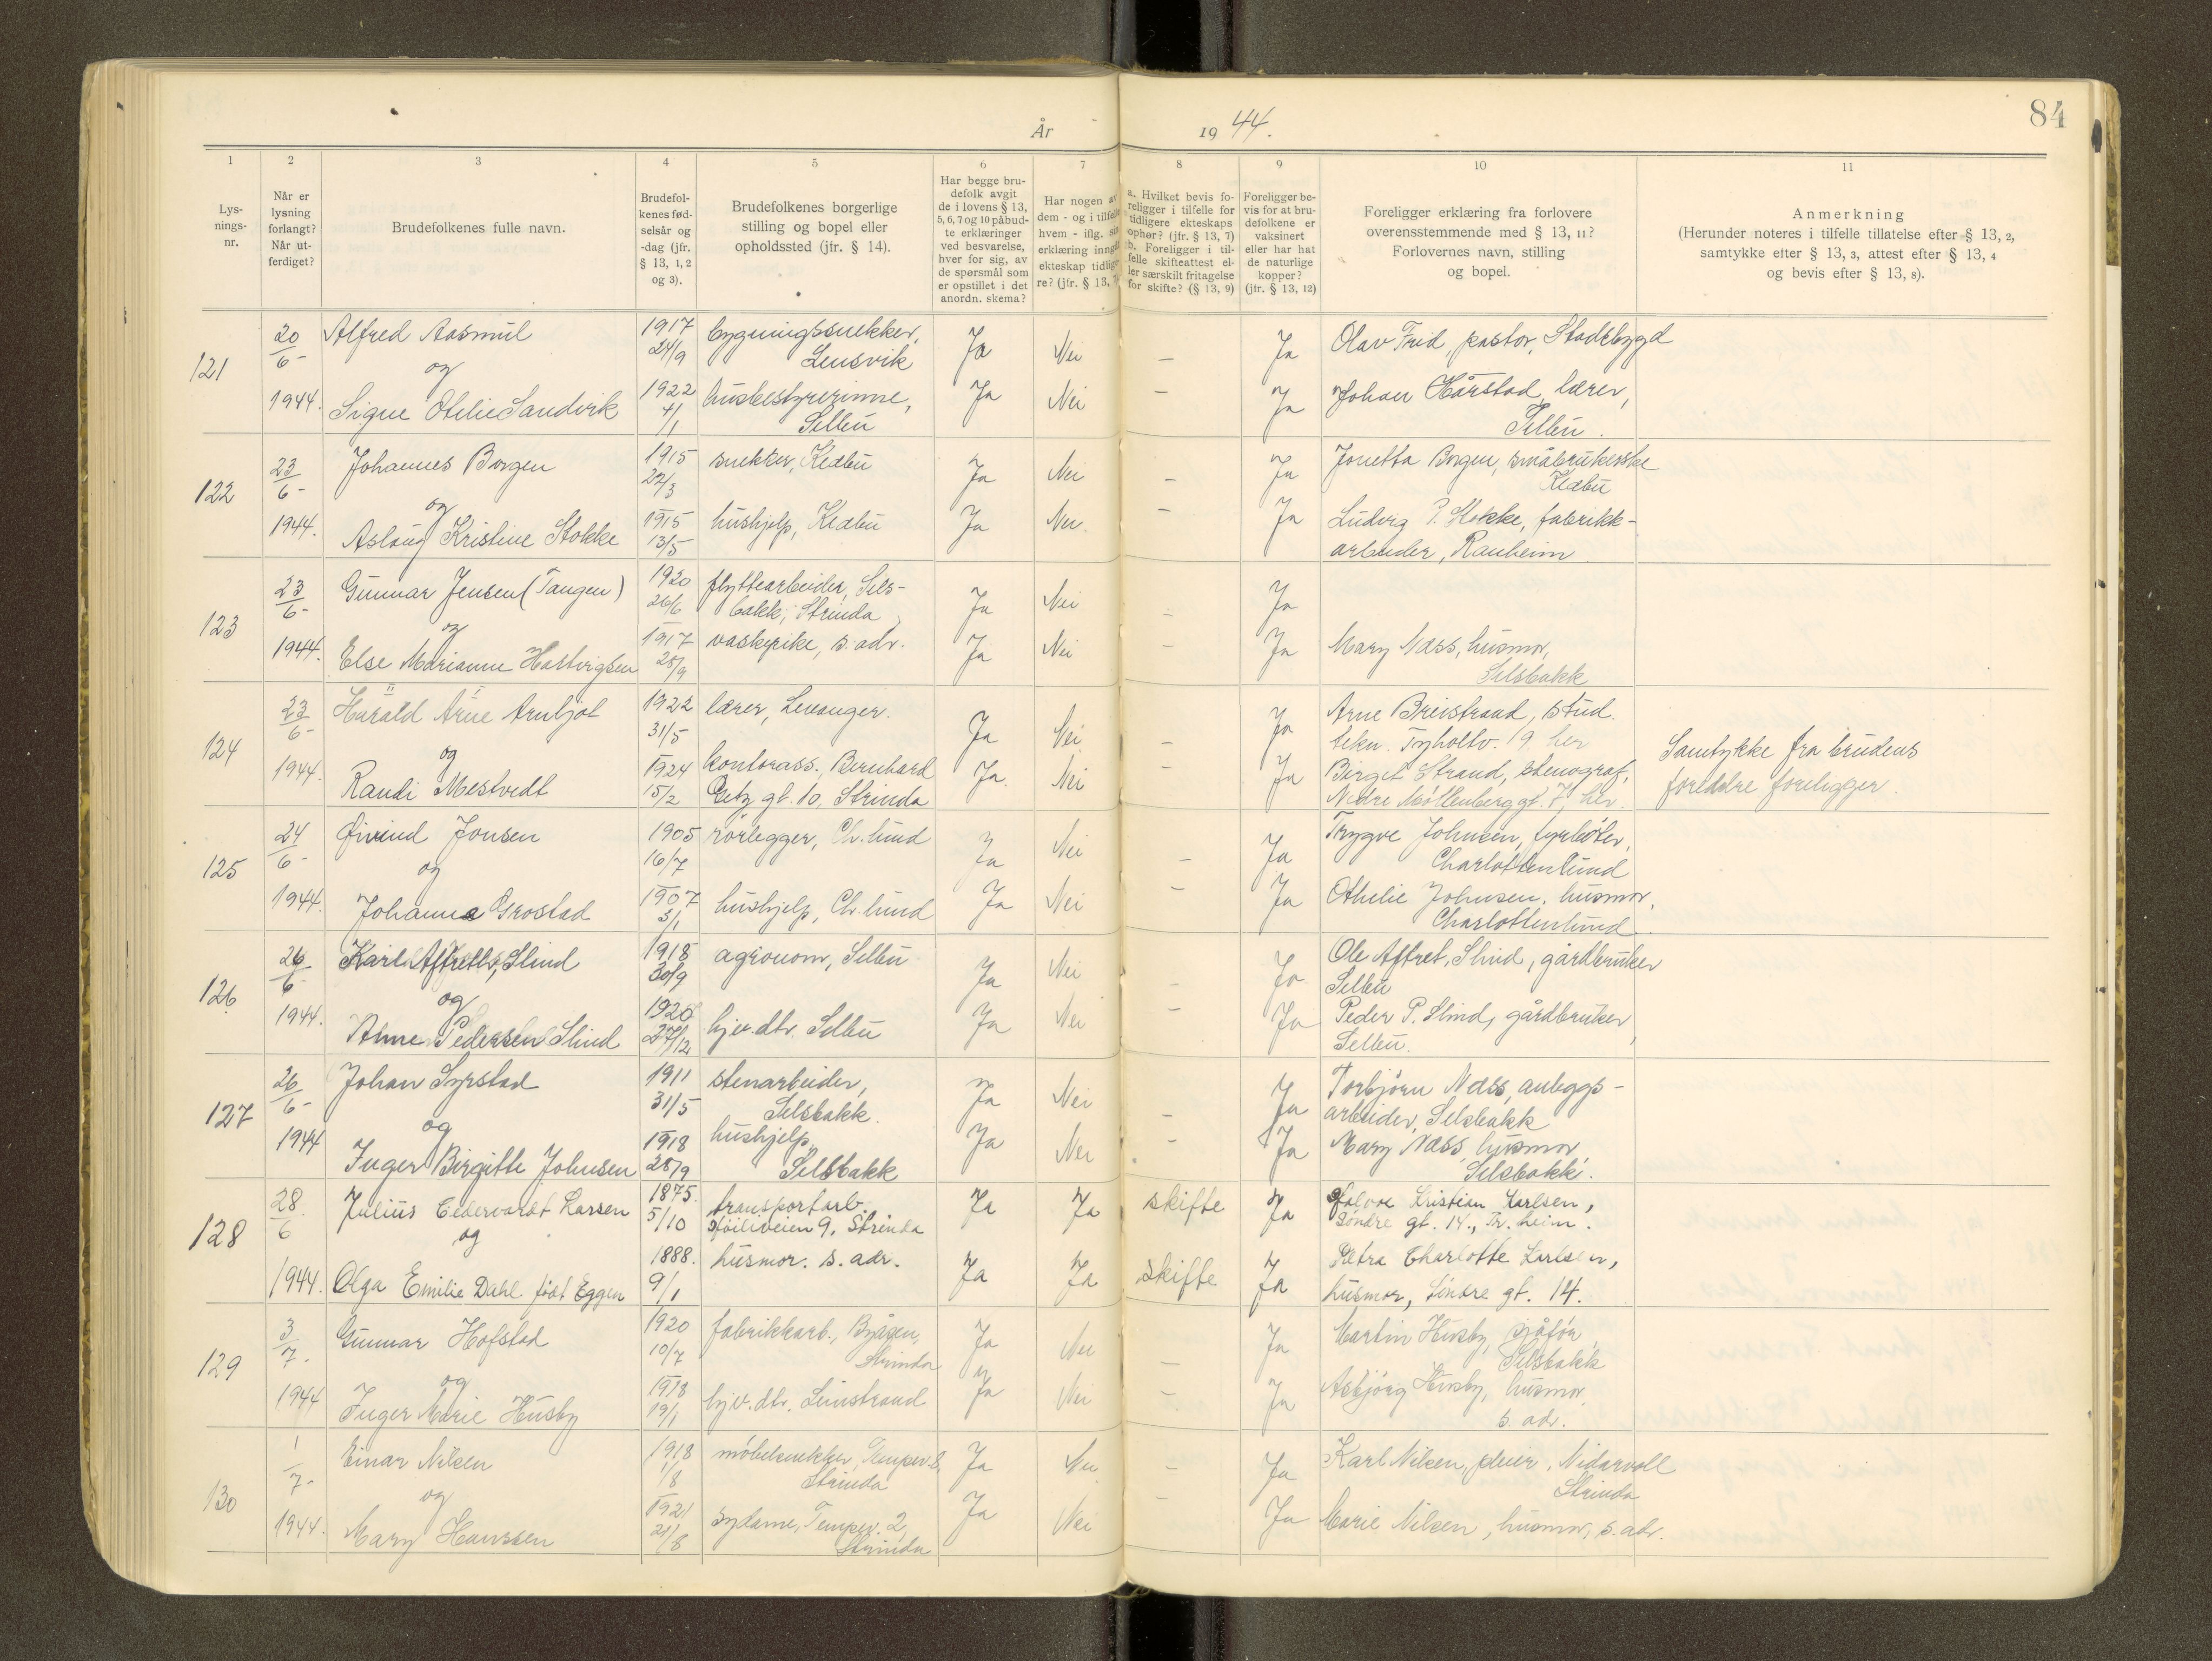 År 1944.
84
1
2
3
4
5
6
7
8
9
10
11
Lys-
nings-
nr.
Når er
lysning
forlangt?
Når ut-
ferdiget?
Brudefolkenes fulle navn.
Brudefol-
kenes fød-
selsår og
-dag (jfr.
§ 13, 1, 2
og 3).
Brudefolkenes borgerlige
stilling og bopel eller
opholdssted (jfr. § 14).
Har begge bru-
defolk avgit
de i lovens § 13,
5, 6, 7 og 10 påbud-
te erklæringer
ved besvarelse,
hver for sig, av
de spørsmål som
er opstillet i det
anordn. skema?
Har nogen av
dem - og i tilfelle
hvem - iflg. sin
erklæring inngått
ekteskap tidlige-
re? (jfr. § 13, 7)
a. Hvilket bevis fo-
religger i tilfelle for
tidligere ekteskaps
ophør? (jfr. § 13, 7)
b. Foreligger i til-
felle skifteattest el-
ler særskilt fritagelse
for skifte? (§ 13, 9)
Foreligger be-
vis for at bru-
defolkene er
vaksinert
eller har hat
de naturlige
kopper?
(jfr. § 13, 12)
Foreligger erklæring fra forlovere
overensstemmende med § 13, 11?
Forlovernes navn, stilling
og bopel.
Anmerkning
(Herunder noteres i tilfelle tillatelse efter § 13, 2,
samtykke efter § 13, 3, attest efter § 13, 4
og bevis efter § 13, 8).
121
20/6-
1944.
Alfred Aasmul
og
Signe Otelie Sandvik
1917
24/9
1922
4/1
bygningssnekker,
Lensvik
husbestyrerinne,
Selbu
Ja Nei – Ja
Ja Nei – Ja
Olav Frid, pastor, Stadsbygd
Johan Hårstad, lærer,
Selbu.
122
23/6-
1944.
Johannes Borgen
og
Aslaug Kristine Stokke
1915
22/3
1915
13/5
snekker, Klæbu
hushjelp, Klæbu
Ja Nei – Ja
Ja Nei – Ja
Jonetta Borgen, småbrukerske
Klæbu
Ludvig P. Stokke, fabrikk-
arbeider, Ranheim
123
23/6-
1944.
Gunnar Jensen (Tangen)
og
Else Marianne Hartvigsen
1920
26/6
1917
28/9
flyttearbeider, Sels-
bakk, Strinda
vaskepike, s. adr.
Ja Nei – Ja
Ja Nei – Ja
Mary Næss, husmor,
Selsbakk
124
23/6-
1944.
Harald Arne Arnljot
og
Randi Mestvedt
1922
31/5
1924
15/2
lærer, Levanger.
kontorass., Bernhard
Getz gt. 10, Strinda
Ja Nei – Ja
Ja. Nei – Ja
Arne Breistrand, stud.
tekn. Tyholtv. 19 her
Birgit Strand, stenograf,
Nedre Möllenberggt. 7, her.
Samtykke fra brudens
foreldre foreligger.
125
24/6-
1944.
Øivind Jonsen
og
Johanna Grostad
1905
16/7
1907
3/1
rörlegger, Ch.lund
hushjelp, Ch.lund
Ja Nei – Ja
Ja Nei – Ja
Trygve Johnsen, fyrböter,
Charlottenlund
Othelie Johnsen, husmor,
Charlottenlund
126
26/6-
1944.
Karl Slind
og
Anne Pedersen Slind
1918
30/9
1920
27/12
agronom, Selbu
hjev. dtr. Selbu
Ja Nei – Ja
Ja Nei – Ja
Ole Aftret, Slind, gårdbruker
Selbu
Peder P. Slind, gårdbruker,
Selbu.
127
26/6-
1944
Johan Syrstad
og
Inger Birgitte Johnsen
1911
31/5
1918
28/9
stenarbeider,
Selsbakk.
hushjelp,
Selsbakk
Ja Nei – Ja
Ja Nei – Ja
Torbjörn Næss, anleggs-
arbeider, Selsbakk
Mary Næss, husmor,
Selsbakk.
128
28/6
1944.
Julius Edervardt Larsen
og
Olga Emilie Dahl födt Eggen
1875.
5/10
1888.
9/1
transportarb.
9. Strinda
husmor. s. adr.
Ja Ja skifte Ja
Ja Ja skifte Ja
Kristian Karlsen,
Söndre gt. 14., Tr.heim.
Petra Charlotte Karlsen,
husmor, Söndre gt. 14.
129
3/7.
1944
Gunnar Hofstad
og
Inger Marie Husby
1920
10/7
1918
19/1
fabrikkarb., Byåsen,
Strinda
hjv. dtr. Leinstrand
Ja Nei – Ja
Ja Nei – Ja
Martin Husby, sjåför,
Selsbakk
Asbjörg Husby, husmor,
s. adr.
130
1/7-
1944.
Einar Nilsen
og
Mary Hanssen
1918
1/8
1921
21/8
möbelsnekker, Tempev. 2,
Strinda
sydame, Tempev. 2,
Strinda
Ja Nei – Ja
Ja Nei – Ja
Karl Nilsen, pleier, Nidarvoll
Strinda
Marie Nilsen, husmor, s. adr.